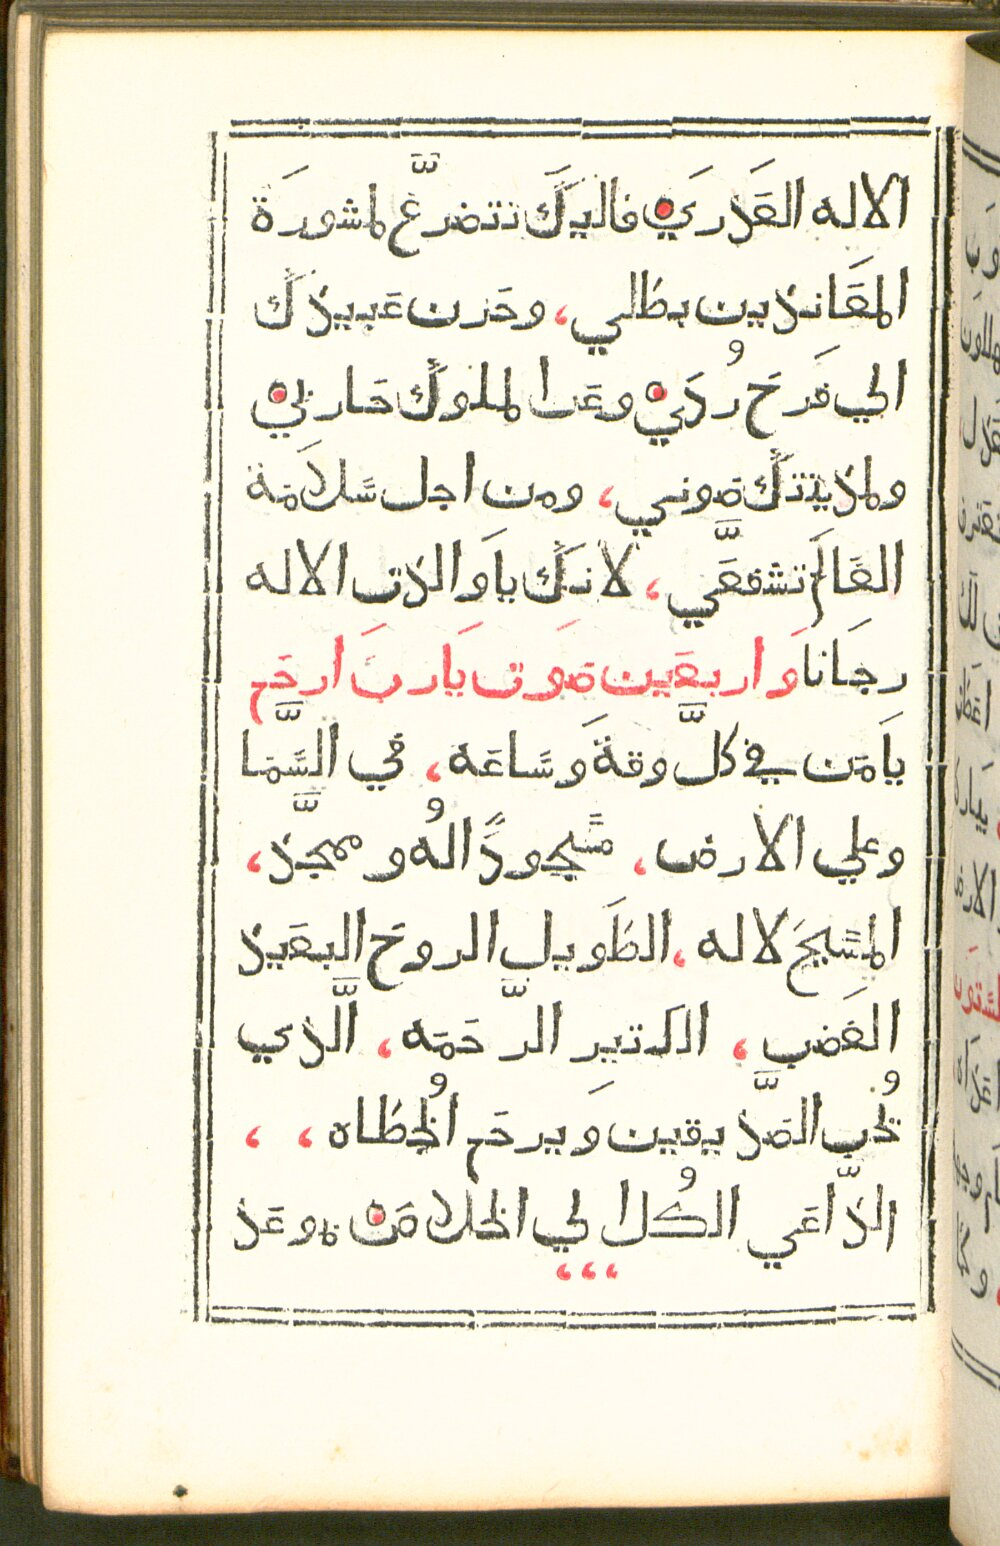 الاله العَذرَي فاليكَ نتضرّع لمشورَة
المعَاندين بطلي، وحَزن عَبيدك
الي فَرحَ رُدَي وعَدا لملوكَ حَاربي
ولمديتتكَ صَوني، ومن اجل سَلاَمَة
العَالَم تشفعّي، لانكَ ياوَالدت الاله
رجَاناوَاربعَين صَوَت يَارَبَ ارحَم
يَامَن في كلّ وقةَ وَسَاعَه، في السّمَا
وعلي الاَرض، مسَجودًالهُ وممجّد،
المسَيحَ لاله، الطَويل الروحَ البعَيد
الغَضب، الكتير الرّحَمَه، الّذي
يُحب الصّديقين وَيرحَم الخُطاه،،
الدّاعَي الكُل الي الخلاصَ مَن موعَد
،،،